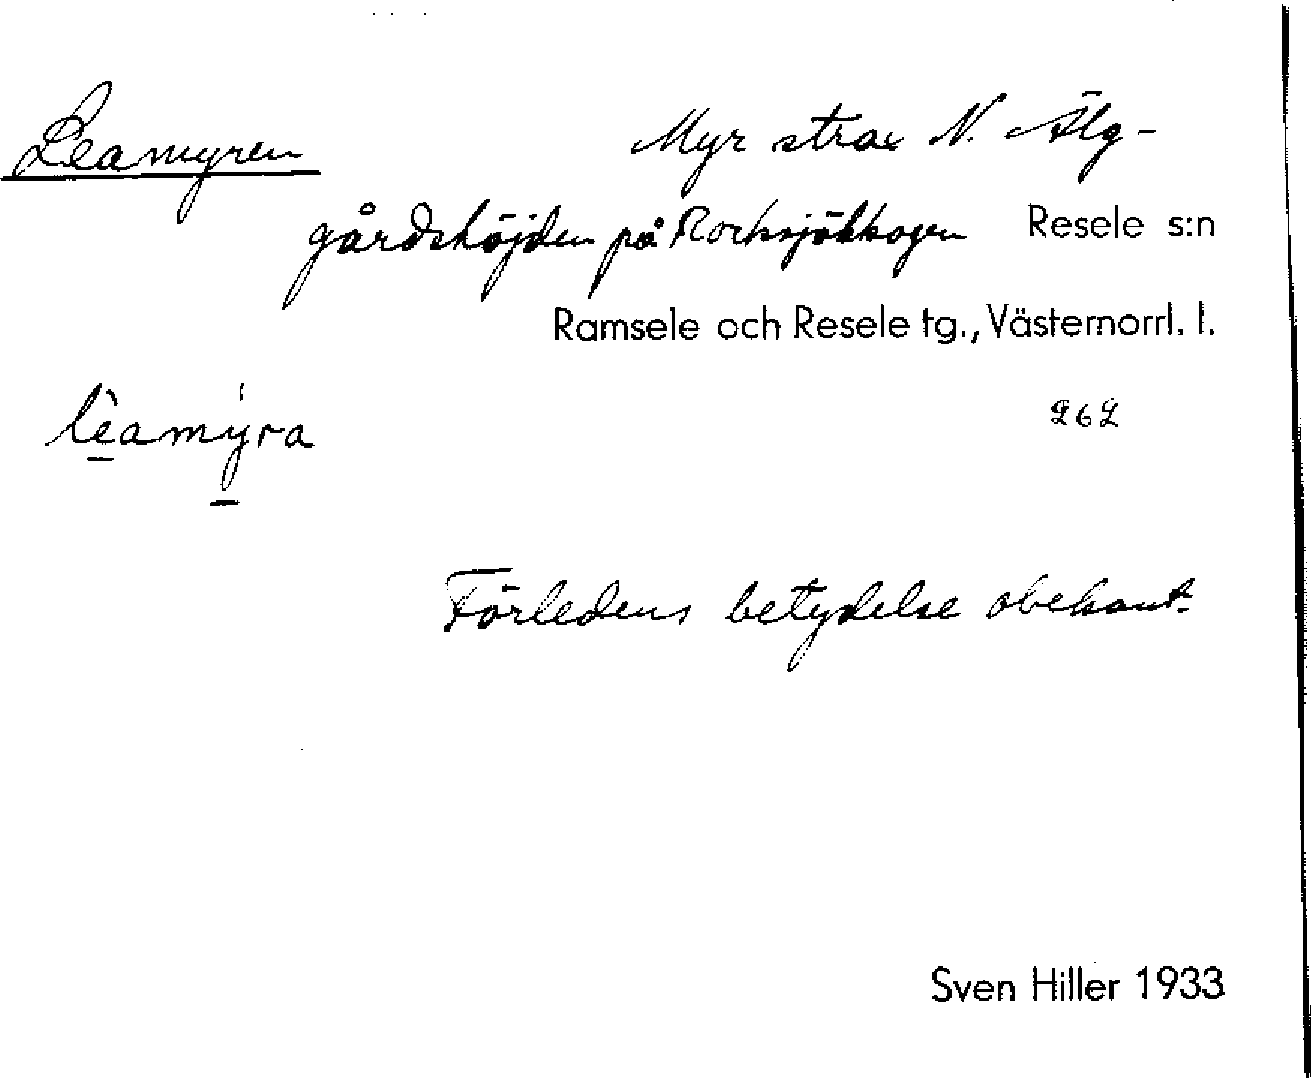 Leamyren
Myr strax N. Älg-
gårdshöjden på Rocksjöskogen Resele s:n
Ramsele och Resele tg., Västernorrl. l.
lèamýra
262
Förledens betydelse obekant.
Sven Hiller 1933